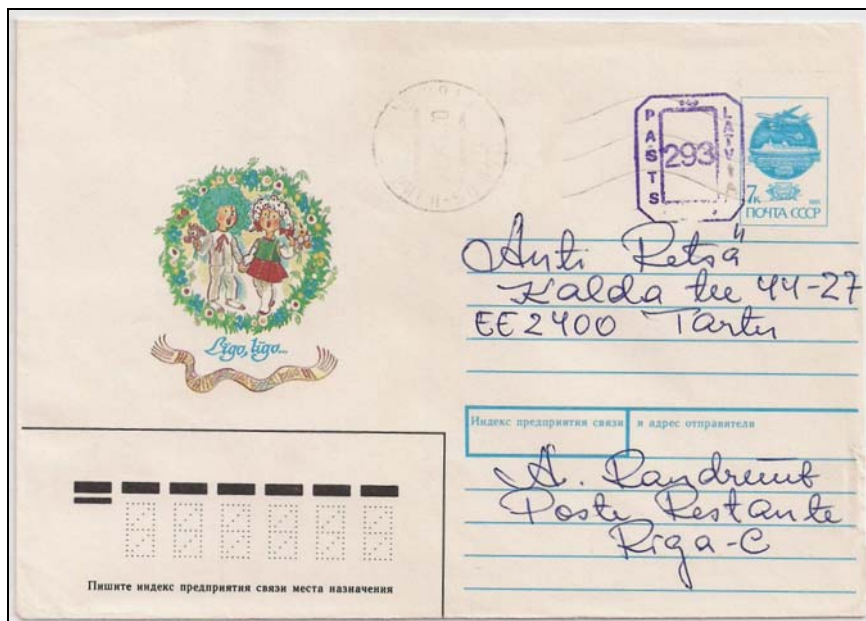 PASTS
293
LATVIA
7к
ПОЧТА СССР
Anti Retsä
Kalda tee 44-27
EE2400 Tartu
Līgo, līgo...
Индекс предприятия связи и адрес отправителя
A.
Poste Restante
Riga-C
Пишите индекс предприятия связи места назначения